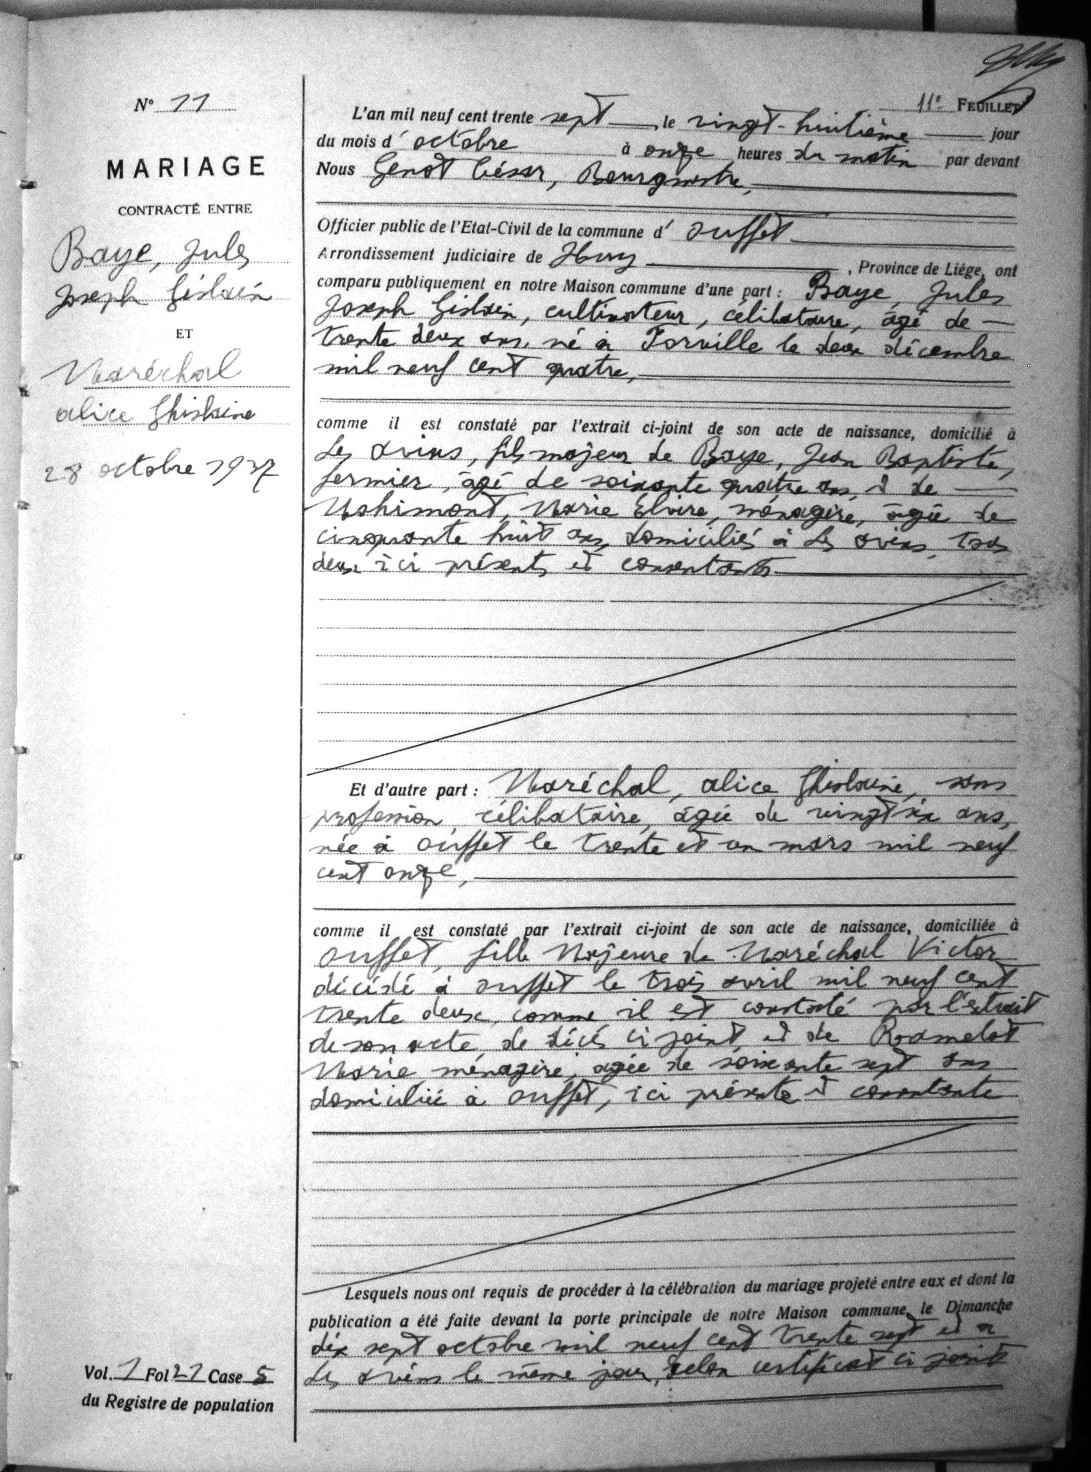 N° 11
MARIAGE
CONTRACTÉ ENTRE
Baye, Jules
Joseph Gislain
ET
Maréchal
Alice Ghislaine
28 octobre 1937
11e FEUILLET
L'an mil neuf cent trente sept, le vingt-huitième jour
du mois d'octobre à onze heures du matin par devant
Nous Genot César, Bourgmestre,
Officier public de l'Etat-Civil de la commune d'Ouffet
Arrondissement judiciaire de Huy, Province de Liége, ont
comparu publiquement en notre Maison commune d'une part : Baye, Jules
Joseph Gislain, cultivateur, célibataire, âgé de
trente deux ans, né à Forville le deux décembre
mil neuf cent quatre,
comme il est constaté par l'extrait ci-joint de son acte de naissance, domicilié à
Les Avins, fils majeur de Baye, Jean Baptiste,
fermier, âgé de soixante quatre ans, et de
Mohimont, Marie Elvire, ménagère, âgée de
cinquante huit ans, domiciliés à Les Avins, tous
deux ici présents et consentants
Et d'autre part : Maréchal, Alice Ghislaine, sans
profession, célibataire, âgée de vingt six ans,
née à Ouffet le trente et un mars mil neuf
cent onze,
comme il est constaté par l'extrait ci-joint de son acte de naissance, domiciliée à
Ouffet, fille Majeure de Maréchal Victor
décédé à Ouffet le trois avril mil neuf cent
trente deux, comme il est constaté par l'extrait
de son acte de décès ci joint, et de Ramelot
Marie ménagère, agée de soixante sept ans
domiciliée à Ouffet, ici présente et consentante
Lesquels nous ont requis de procéder à la célébration du mariage projeté entre eux et dont la
publication a été faite devant la porte principale de notre Maison commune, le Dimanche
dix sept octobre mil neuf cent trente sept et à
Les Avins le même jour, selon certificat ci joint
Vol. 1 Fol 21 Case 5
du Registre de population